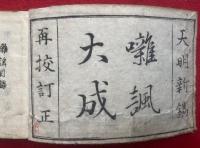 天明新鐫
囃諷
大成
再挍訂正